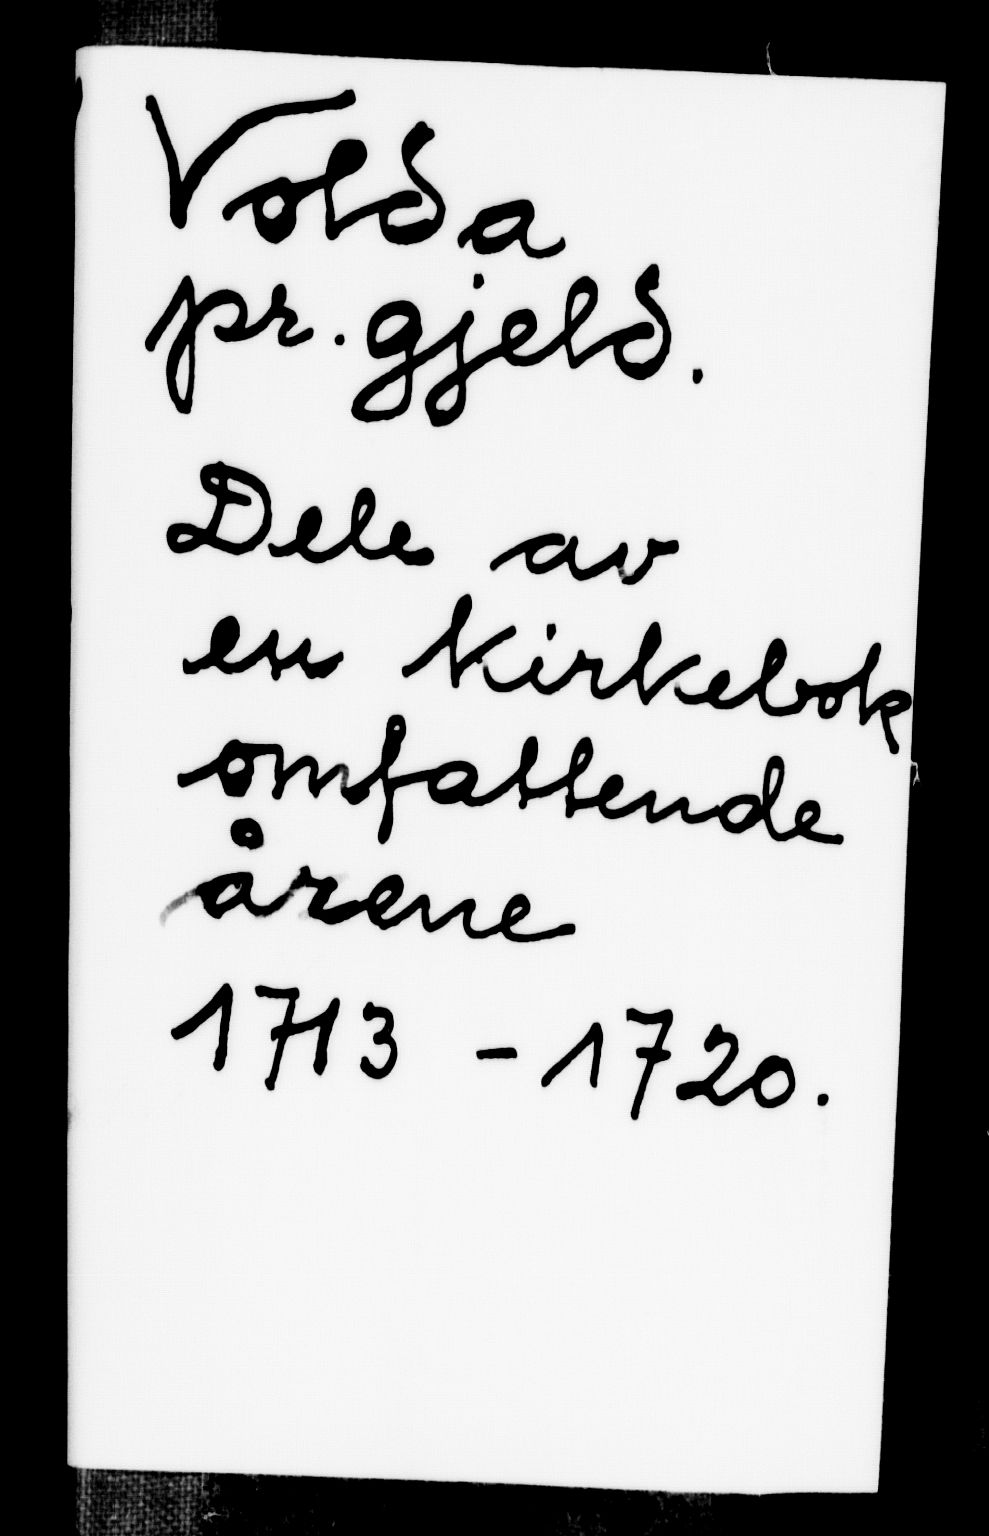 Volda
pr. gjeld.
Dele av
en kirkebok
omfattende
årene
1713 - 1720.